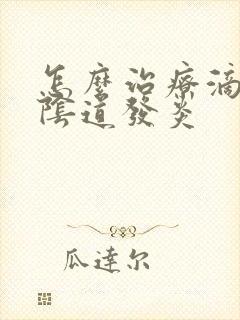 怎麼治療滴
陰道發炎
瓜達尔